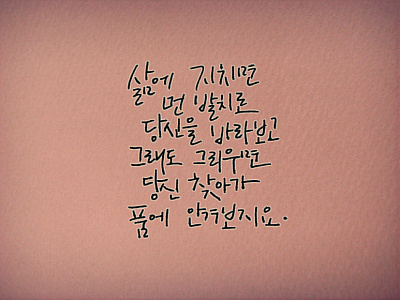 삶에 지치면
먼 발치로
당신을 바라보고
그래도 그리우면
당신 찾아가
품에 안겨보지요.